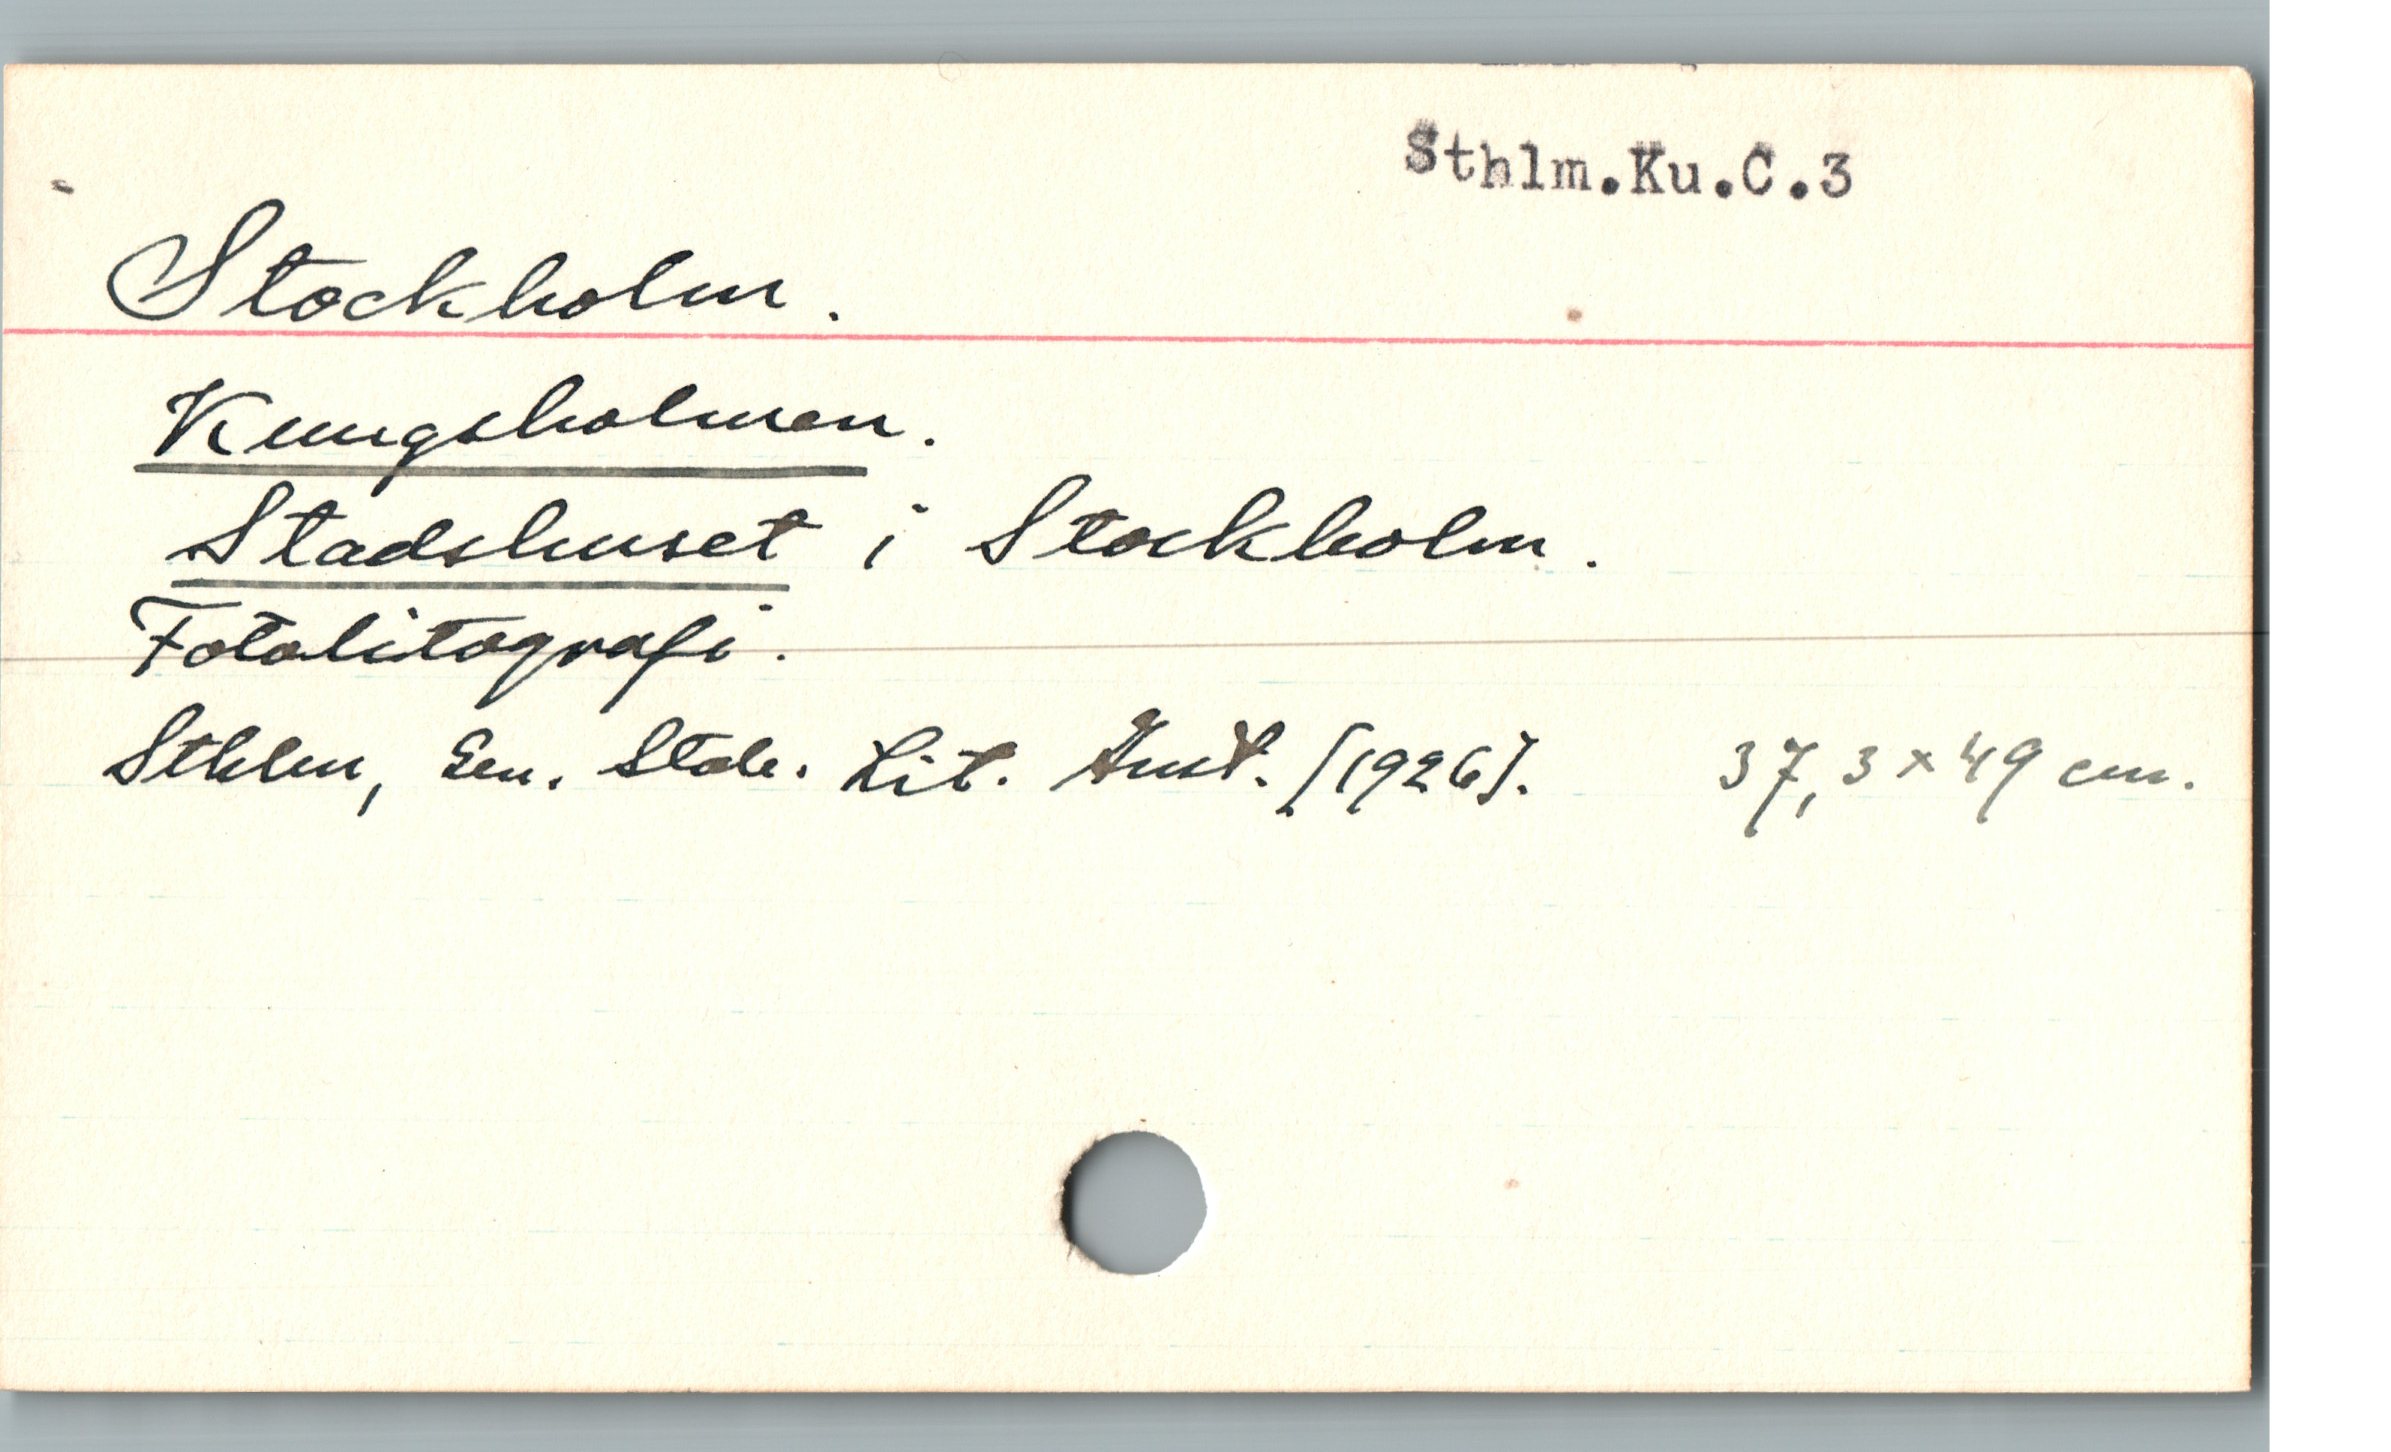 Sthlm.Ku.C.3
Stockholm.
Kungsholmen.
Stadshuset i Stockholm.
Fotolitografi.
Sthlm, Gen. Stab. Lit. Anst. [1926]. 37,3 x 49 cm.